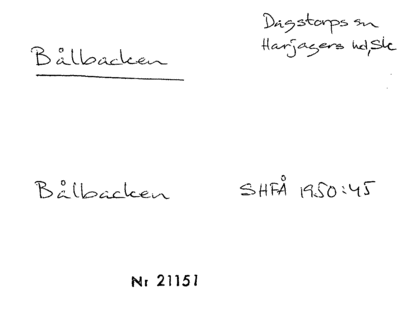 Dagstorps sn
Harjagers hd, Sk
Bålbacken
Bålbacken SHFÅ 1950:45
Nr 21151